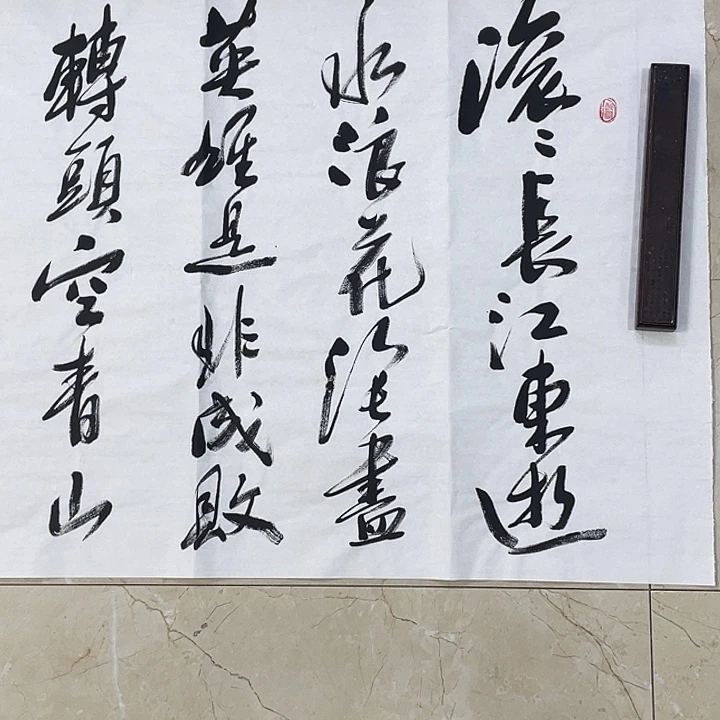 滾〻長江東逝
水浪花淘盡
英雄是非成敗
轉頭空青山